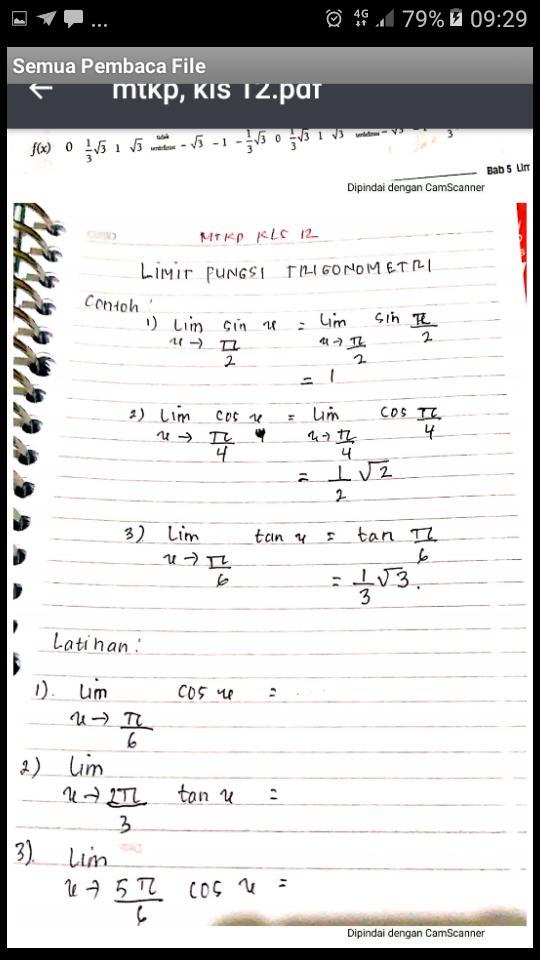 4G 79% 09:29
Semua Pembaca File
← mtkp, kls 12.pdf
f(x) 0 1/3√3 1 √3 - √3 - 1 - 1/3√3 0 1/3√3 1 √3
Bab 5 Lim
Dipindai dengan CamScanner
MTKP KLS 12
LIMIT FUNGSI TRIGONOMETRI
Contoh :
1) Lim x→π/2 sin x = Lim x→π/2 sin π/2
= 1
2) Lim x→π/4 cos x = Lim x→π/4 cos π/4
= 1/2 √2
3) Lim x→π/6 tan x = tan π/6
= 1/3 √3.
Latihan :
1). Lim x→π/6 cos x = ....
2) Lim x→2π/3 tan x =
3). Lim x→5π/6 cos x =
Dipindai dengan CamScanner